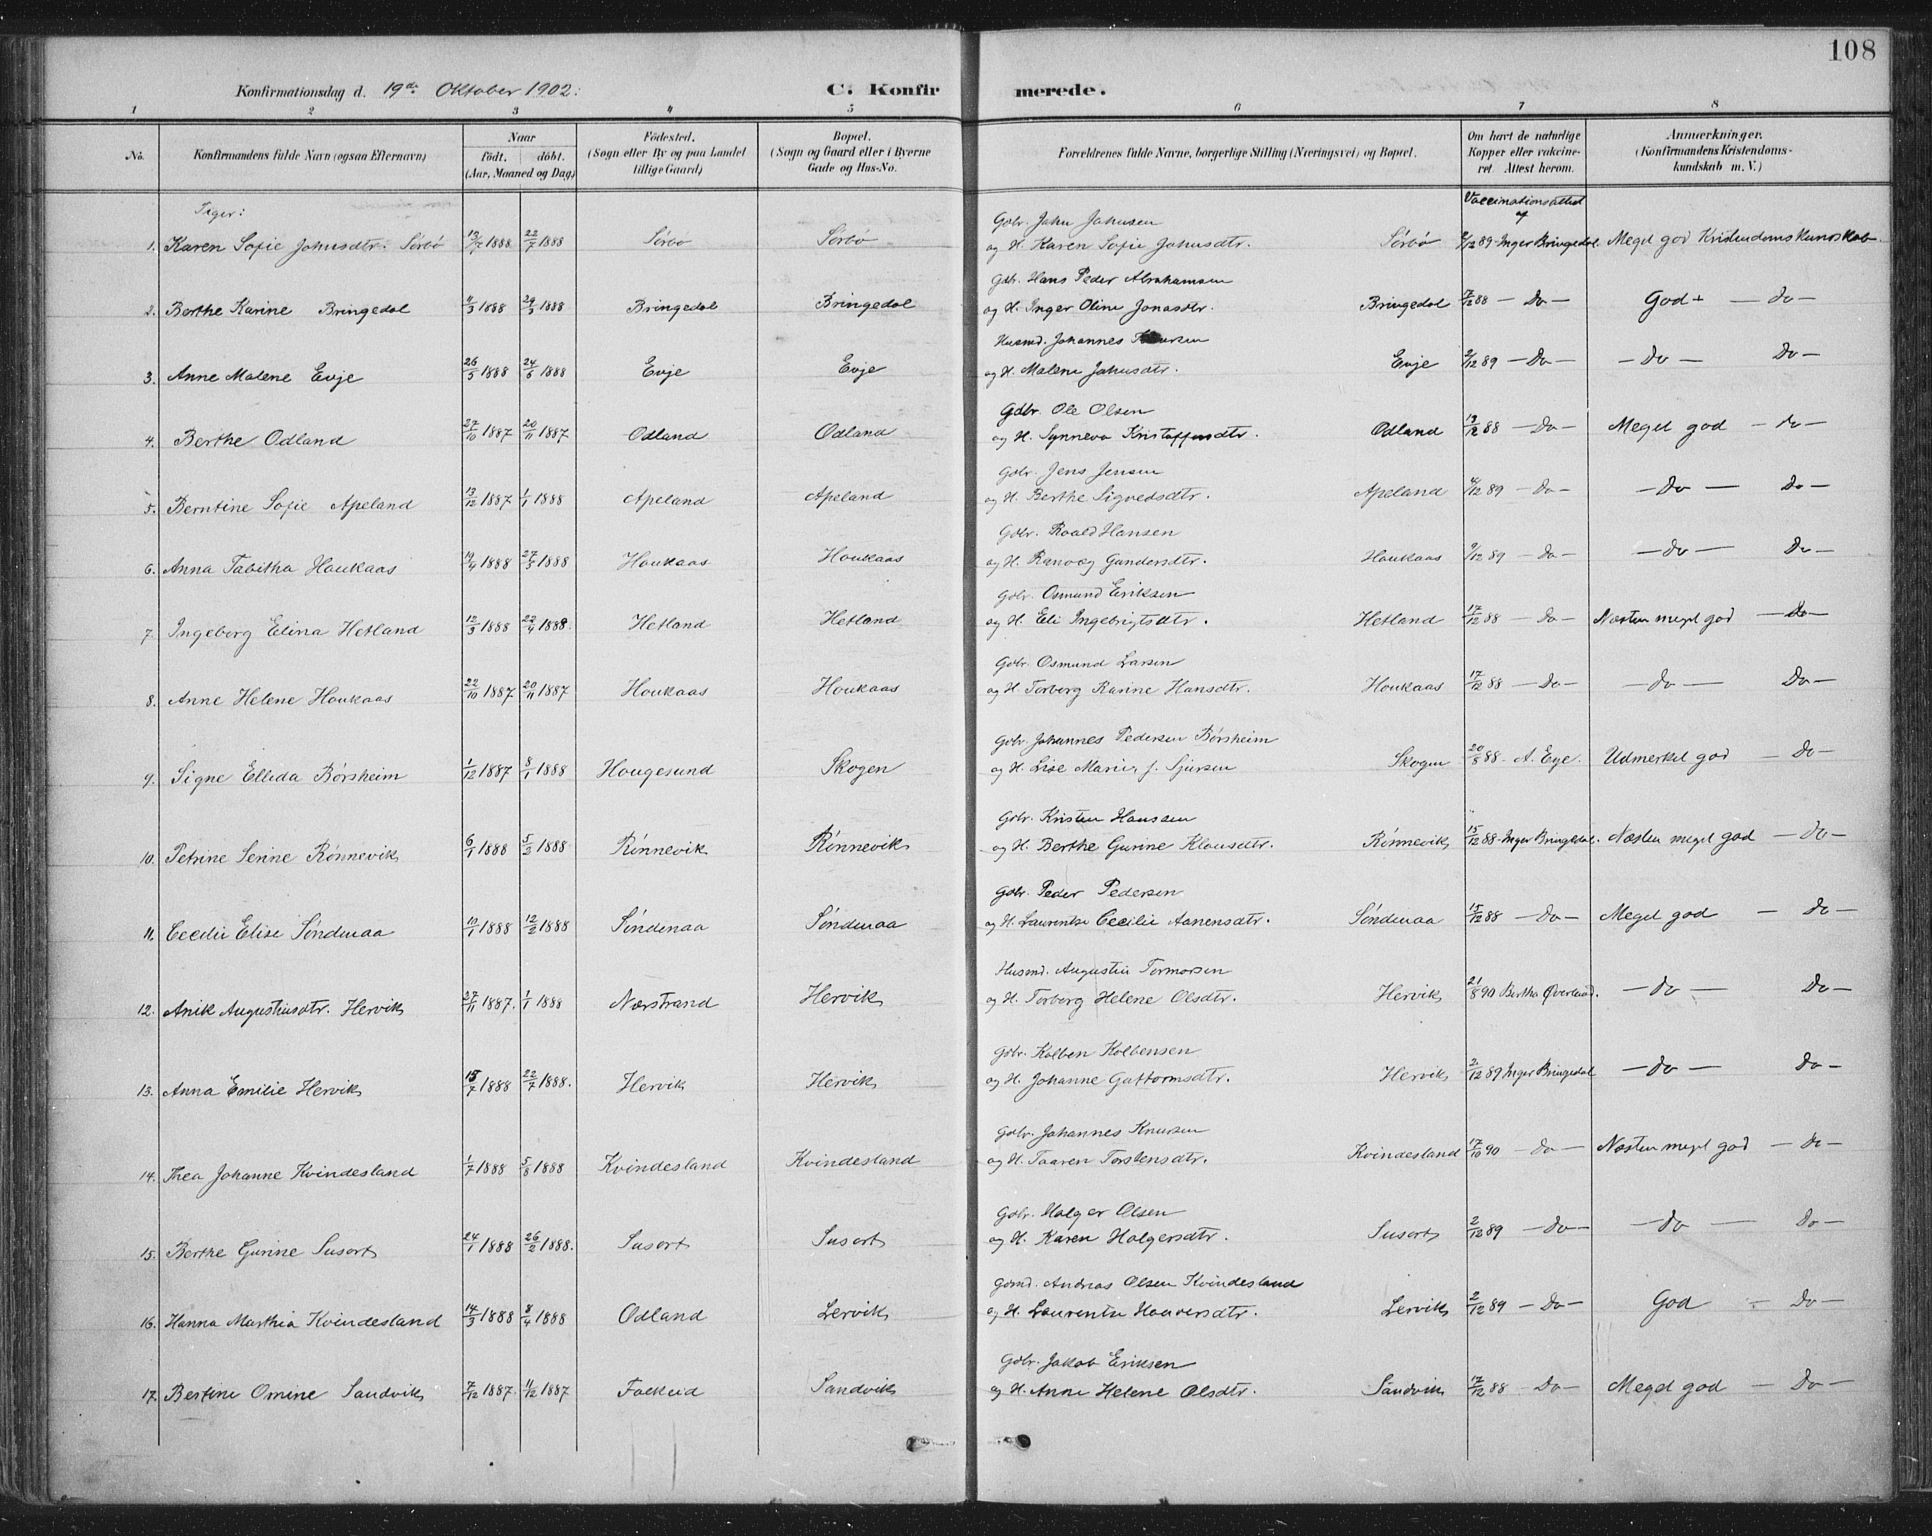 108
Konfirmationsdag d. 19de Oktober 1902. C. Konfirmerede.
1 2 3 4 5 6 7 8
No. Konfirmandens fulde Navn (ogsaa Efternavn) Naar født. døbt. (Aar, Maaned og Dag) Fødested. (Sogn eller By og paa Landet tillige Gaard) Bopæl. (Sogn og Gaard eller i Byerne Gade og Hus-No. Forældrenes fulde Navne, borgerlige Stilling (Næringsvei) og Bopæl. Om havt de naturlige Kopper eller vakcineret. Attest herom. Anmærkninger. (Konfirmandens Kristendomskundskab m. V.)
Piger: Vaccinationsattest af
Gdbr. Jahn Jahnsen
1. Karen Sofie Jahnsdtr. Sørbø 13/7 1888 22/7 1888 Sørbø Sørbø og H. Karen Sofie Jahnsdtr. Sørbø 2/12 89 - Inger Bringedal. Meget god Kristendomskundskab.
Gdb. Hans Peder Abrahamsen
2. Berthe Karine Bringedal 11/3 1888 29/3 1888 Bringedal Bringedal og H. Inger Oline Jonasdtr. Bringedal 17/12 88 - Do - God + - do -
Husmd. Johannes
3. Anne Malene Evje 26/5 1888 24/6 1888 Evje Evje og H. Malene Jahnsdtr. Evje 2/12 89 - Do - - Do - Do -
Gdbr. Ole Olsen
4. Berthe Odland 27/10 1887 20/11 1887 Odland Odland og H. Synneva Kristoffersdtr. Odland 13/12 88 - Do - Meget god - do -
Gdbr. Jens Jensen
5. Berntine Sofie Apeland 13/12 1887 1/1 1888 Apeland Apeland og H. Berthe Sigvedsdtr. Apeland 4/12 89 - Do - - Do - Do -
Gdbr. Roald Hansen
6. Anna Tabitha Houkaas 19/4 1888 27/5 1888 Houkaas Houkaas og H. Ranvæg Gundersdtr. Houkaas 9/12 89 - Do - - Do - Do -
Gdbr. Osmund Eriksen
7. Ingeborg Elina Hetland 12/3 1888 22/4 1888. Hetland Hetland og H. Eli Ingebrigtsdtr. Hetland 17/12 88 - Do - Næsten meget god - Do -
Gdbr. Osmund Larsen
8. Anne Helene Houkaas 22/10 1887 20/11 1887 Houkaas Houkaas og H. Torborg Karine Hansdtr. Houkaas 17/12 88 - Do - - do - Do -
Gdbr. Johannes Pedersen Børsheim
9. Signe Ellida Børsheim 1/12 1887 8/1 1888 Hougesund Skogen og H. Lise Marie, f. Sjursen Skogen 20/8 88 - A. Ege. Udmerket god - Do -
Gdbr. Kristen Hanssen
10. Petrine Serine Rønnevik 6/1 1888 5/2 1888 Rønnevik Rønnevik og H. Berthe Gurine Klausdtr. Rønnevik 15/12 88 - Inger Bringedal. Næsten meget god - Do -
Gdbr. Peder Pedersen
11. Cecilie Elise Søndenaa 10/1 1888 12/2 1888 Søndenaa Søndenaa og H. Laurentse Cecilie Aanensdtr. Søndenaa 15/12 88 - Do - Meget god - Do -
Husmd. Augustin Tormorsen
12. Anik Augustinsdtr. Hervik 27/11 1887. 1/1 1888 Nærstrand Hervik og H. Torborg Helene Olsdtr. Hervik 21/8 90 Bertha Øverland. - Do - Do -
Gdbr. Kolben Kolbensen
13. Anna Emilie Hervik 15/7 1888 22/7 1888. Hervik Hervik og H. Johanne Guttormsdtr. Hervik 2/12 89 Inger Bringedal - Do - Do -
Gdbr. Johannes Knutsen
14. Thea Johanne Kvindesland 1/7 1888 5/8 1888 Kvindesland Kvindesland og H. Taaren Torstensdtr. Kvindesland 17/10 90 - Do - Næsten meget god - Do -
Gdbr. Holger Olsen
15. Berthe Gurine Susort 24/1 1888 26/2 1888. Susort Susort og H. Karen Holgersdtr. Susort 2/12 89 - Do - - do - Do -
Gdmd. Andreas Olsen Kvindesland
16. Hanna Marthia Kvindesland 14/3 1888 8/4 1888 Odland Lervik og H. Laurentse Haaversdtr. Lervik 2/12 89 - Do - God - Do -
Gdbr. Jakob Eriksen
17. Bertine Omine Sandvik 7/12 1887. 11/12 1887 Falkeid Sandvik og H. Anne Helene Olsdtr. Sandvik 17/12 88 - Do - Meget god - Do -